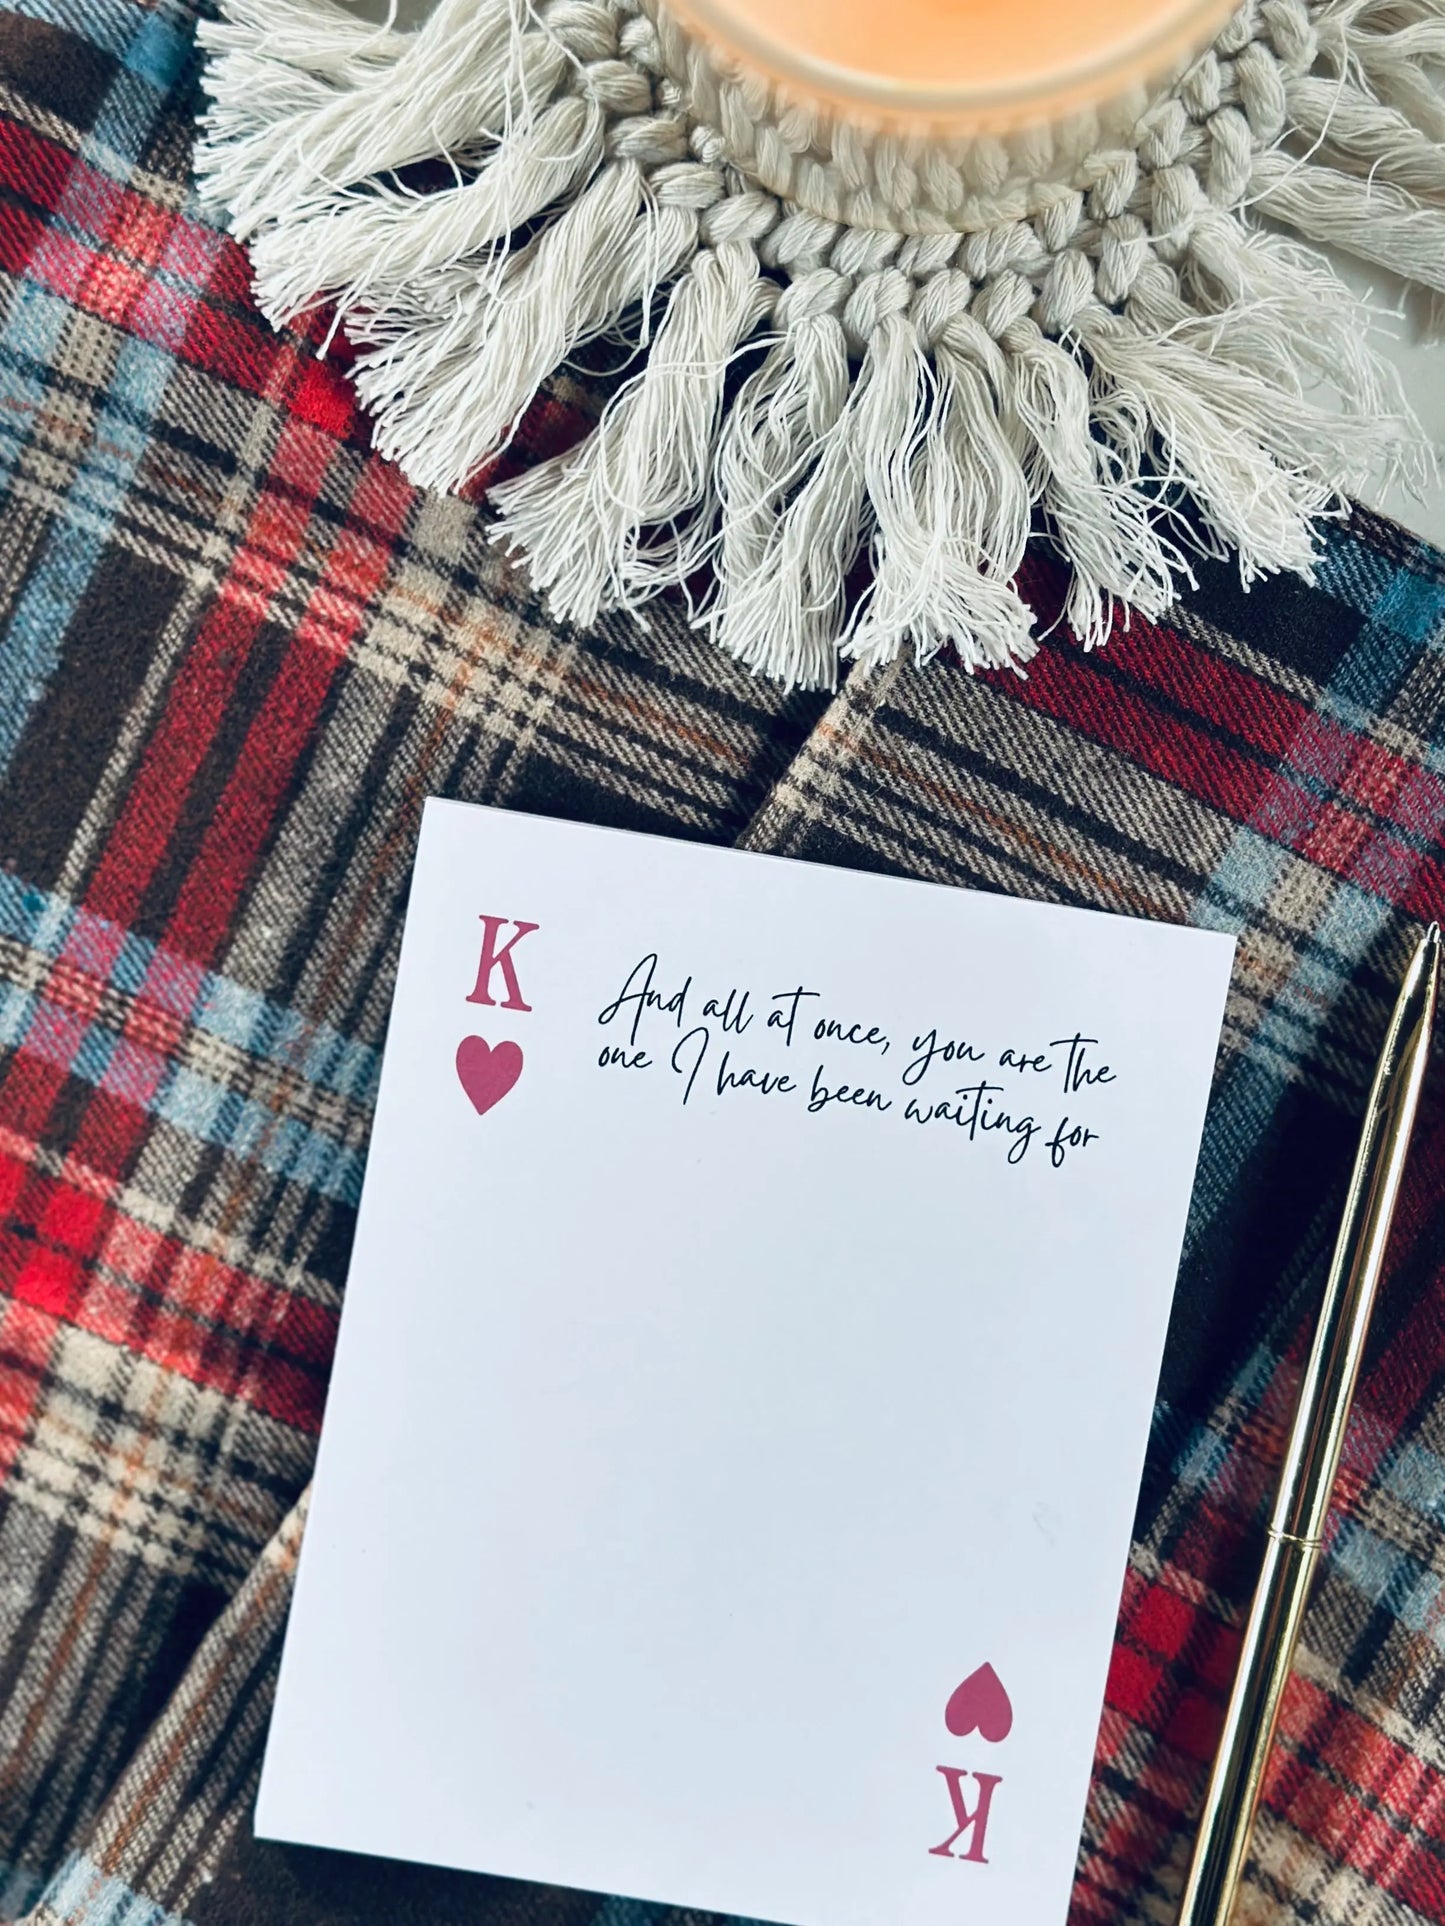 K
And all at once, you are the
one I have been waiting for
K